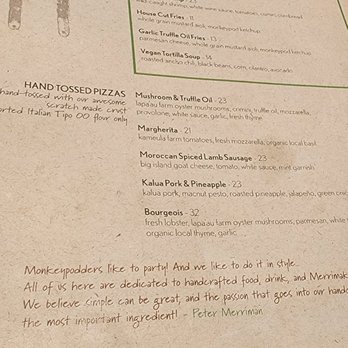 House Cut Fries - 11
whole grain mustard aioli, monkeypod ketchup
Garlic Truffle Oil Fries - 13
parmesan cheese, whole grain mustard aioli, monkeypod ketchup
Vegan Tortilla Soup - 14
roasted ancho chili, black beans, corn, cilantro, avocado
HAND TOSSED PIZZAS
hand-tossed with our awesome
scratch made crust
Italian Tipo 00 flour only
Mushroom & Truffle Oil - 23
lapa'au farm oyster mushrooms, cremini, truffle oil, mozzarella,
provolone, white sauce, garlic, fresh thyme
Margherita - 21
kameula farm tomatoes, fresh mozzarella, organic local basil
Moroccan Spiced Lamb Sausage - 23
big island goat cheese, tomato, white sauce, mint garnish
Kalua Pork & Pineapple - 23
kalua pork, macnut pesto, roasted pineapple, jalapeño, green
Bourgeois - 32
fresh lobster, lapa'au farm oyster mushrooms, parmesan, white
organic local thyme, garlic
Monkeypodders like to party! And we like to do it in style.
All of us here are dedicated to handcrafted food, drink, and
We believe simple can be great, and the passion that goes into our
the most important ingredient! - Peter Merriman